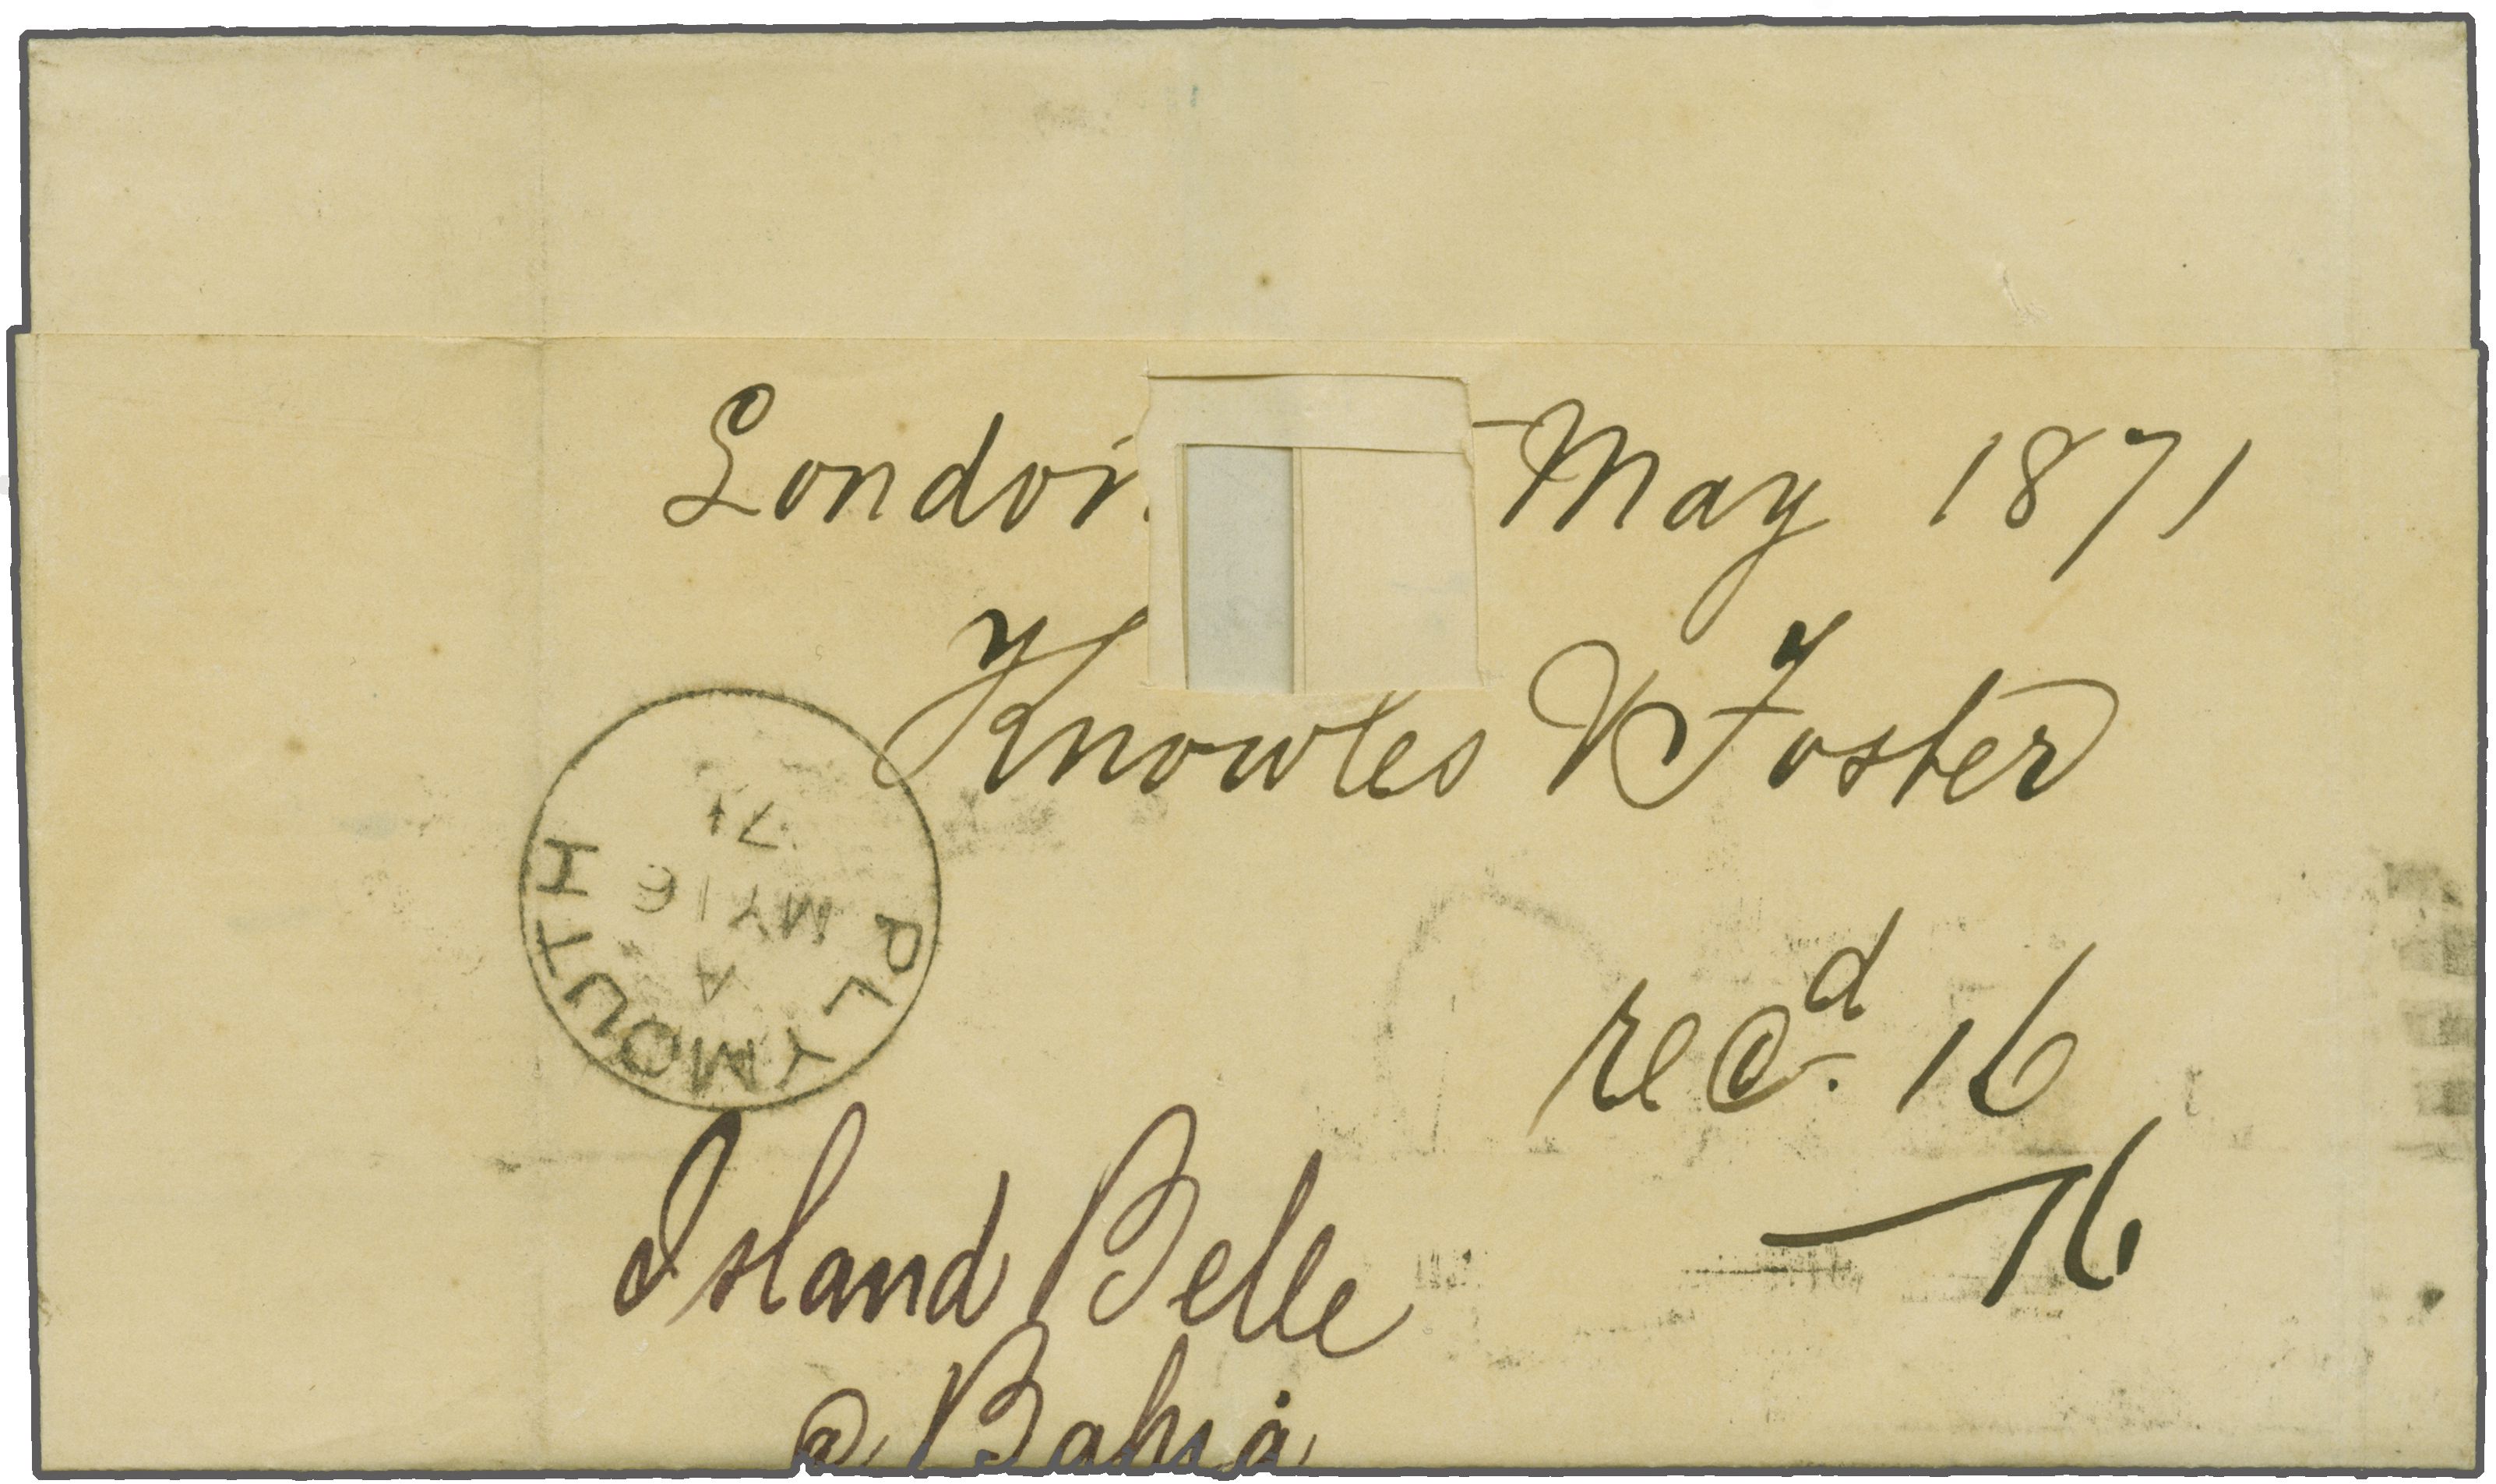 London May 1871
Knowles & Foster
PLYMOUTH
A
MY 16
71
recd. 16
16
Island Belle
@ Bahia